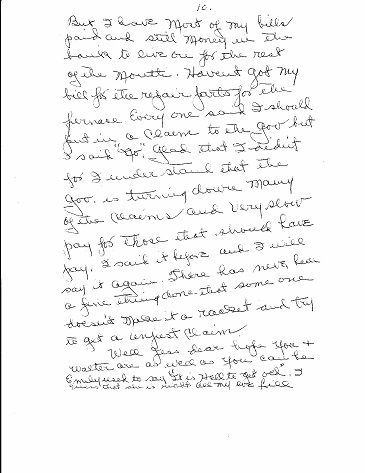 10.
But I have Most of my bills
paid and still Money in the
bank to live on for the rest
of the Month. Havent got my
bill for the repair parts for the
furnace Every one said I should
put in a Claim to the Gov but
I said "No". Glad that I didn't
for I under stand that the
Gov. is turning down Many
of the Claims and Very slow
pay for those that should have
pay. I said it before and I will
say it again. There has never been
a fine thing done that some one
doesn't Make it a racket and try
to get a unjust Claim
Well Jess dear hope you +
Walter are as well as you can be
Emily used to say "It is Hell to get old". I
guess that she is right all my love